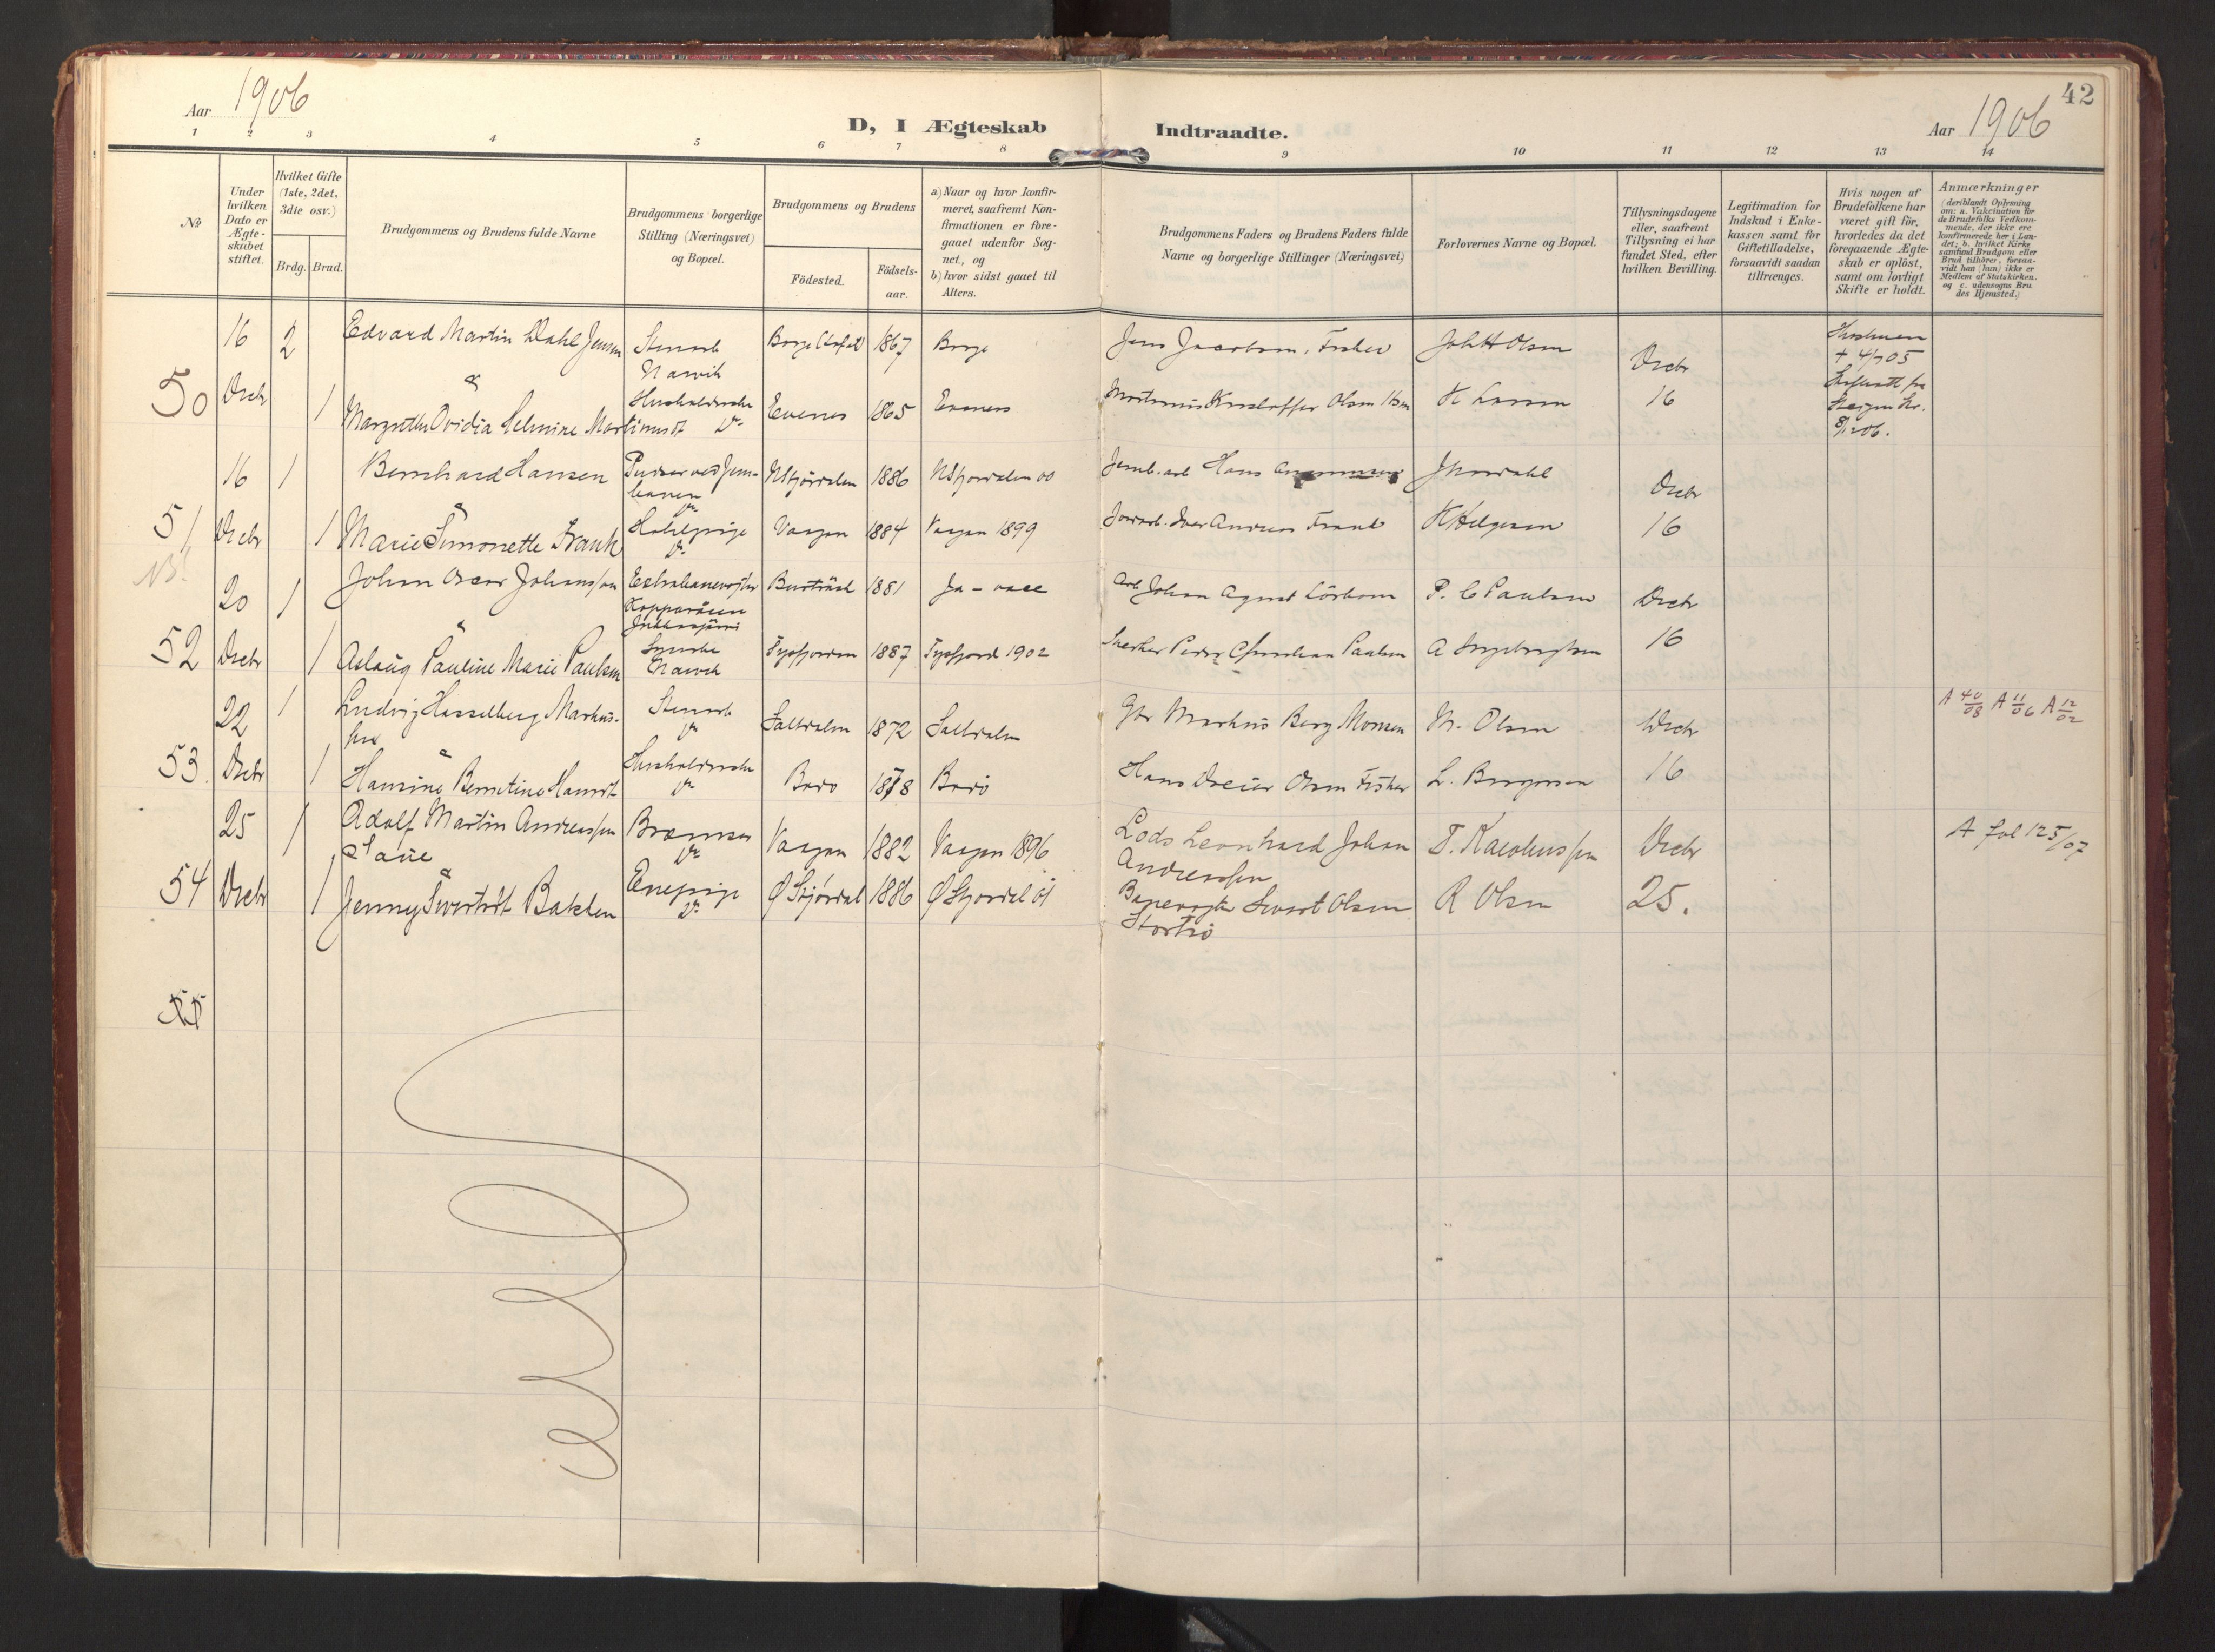 42
Aar 1906
D, I Ægteskab Indtraadte.
Aar 1906
1 2 3 4 5 6 7 8 9 10 11 12 13 14
No
Under hvilken Dato er Ægte-skabet stiftet.
Hvilket Gifte (1ste, 2det, 3die osv.)
Brdg. Brud.
Brudgommens og Brudens fulde Navne
Brudgommens borgerlige Stilling (Næringsvei) og Bopæl.
Brudgommens og Brudens
Födested.
Födsels-aar.
a) Naar og hvor konfir-meret, saafremt Kon-firmationen er fore-gaaet udenfor Sog-net, og
b) hvor sidst gaaet til Alters.
Brudgommens Faders og Brudens Faders fulde Navne og borgerlige Stillinger (Næringsvei)
Forlovernes Navne og Bopæl.
Tillysningsdagene eller, saafremt Tillysning ei har fundet Sted, efter hvilken Bevilling.
Legitimation for Indskud i Enke-kassen samt for Giftetilladelse, forsaavidt saadan tiltrænges.
Hvis nogen af Brudefolkene har været gift för, hvorledes da det foregaaende Ægte-skab er oplöst, samt om lovligt Skifte er holdt.
Anmærkninger
(deriblandt Oplysning om: a. Vakcination for de Brudefolks Vedkom-mende, der ikke ere konfirmerede her i Lan-det; b. hvilket Kirke samfund Brudgom eller Brud tilhörer, forsaa-vidt han (hun) ikke er Medlem af Statskirken. og c. udensogns Bru des Hjemsted.)
50 16 Decbr 2 Edvard Martin Dahl Jensen Stenarb Narvik Borge 1867 Borge Jens Jacobsen, Fisker Joh H Olsen Decbr 16
Hustruen + 4/7 05
8/12 06.
&
1 Margrethe Ovidia Helmine Martinusdt Evenes 1865 Evenes Olsen K Larsen
51 16 Decbr 1 Bernhard Hansen Pudser ved Jern-banen N Stjørdalen 1886 N Stjørdalen 00 Jernb. arb Hans Decbr 16
&
1 Marie Simonette Frank Vaagan 1884 Vaagan 1899 Iver Andreas Frank K Helgesen
NB!
52 20 Decbr 1 Johan Oscar Johansson Burträsk 1881 Johan August P. C Paulsen Decbr 16
&
1 Aslaug Pauline Marie Paulsen Syerske Narvik Tysfjorden 1887 Tysfjord 1902 Peder Christian Paulsen A Ingebrigtsen
53. 22 Decbr 1 Ludvig Hasselberg Markus-sen Stenarb Do Saltdalen 1872 Saltdalen Gbr Markus Berg Monsen M. Olsen Decbr 16
A 40/08 A 11/06 A 12/02
&
1 Hansine Berntine Hansdt Do Bodø 1878 Bodø Hans Dreier Olsen Fisker
54 25 Decbr 1 Adolf Martin Andreassen Bremser Do Vaagan 1882 Vaagan 1896 Lods Leonhard Johan Andreassen T. Decbr 25.
A fol 125/07
&
1 Jenny Sivertsdt Bakken Enepige Do Ø Stjørdal 1886 Ø Stjørdal 01 Banevogter Sivert Olsen R Olsen
55